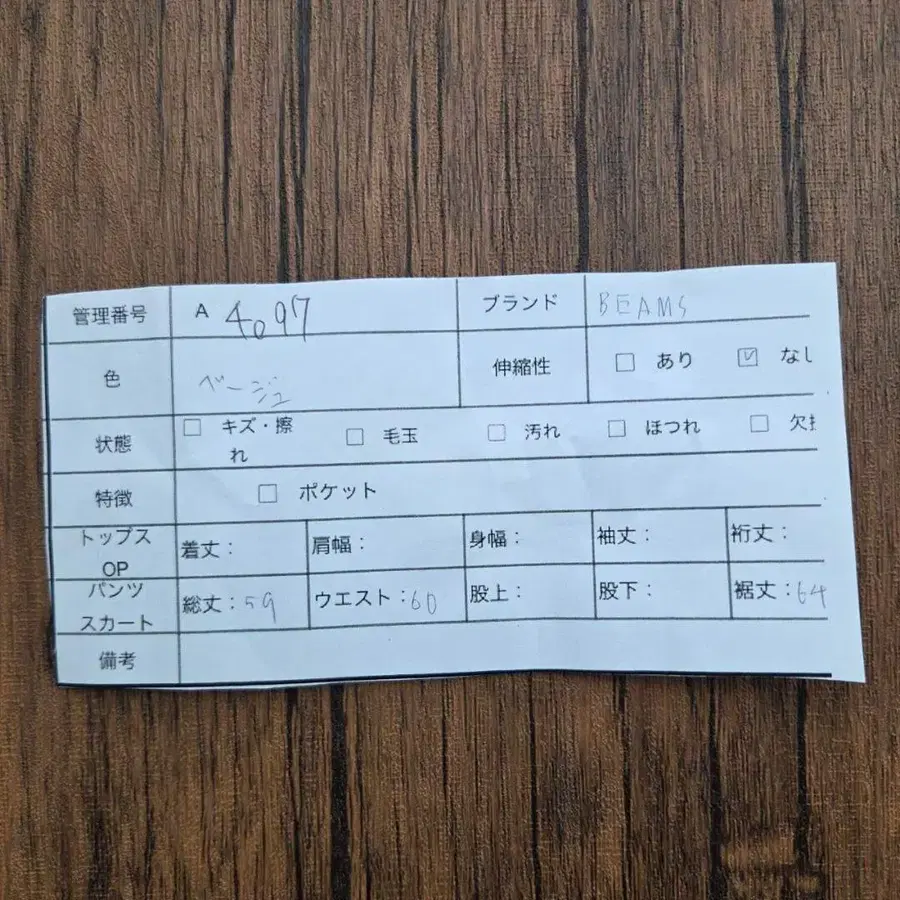 管理番号 A 4097 ブランド BEAMS
色 ベージュ 伸縮性 ☐ あり ☑ なし
状態 ☐ キズ・擦れ ☐ 毛玉 ☐ 汚れ ☐ ほつれ ☐
特徴 ☐ ポケット
トップス OP 着丈： 肩幅： 身幅： 袖丈： 裄丈：
パンツ スカート 総丈：59 ウエスト：60 股上： 股下： 裾丈：64
備考